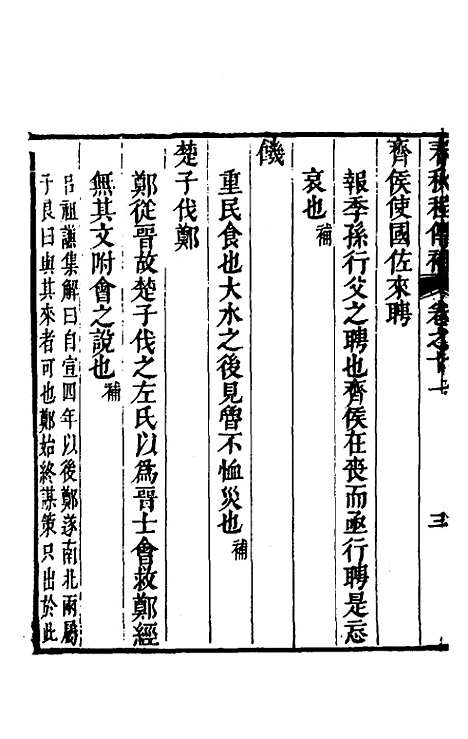 春秋程傳補 卷之十一 三
齊侯使國佐來聘
報季孫行父之聘也齊侯在喪而亟行聘是忘
哀也補
饑
重民食也大水之後見魯不恤災也補
楚子伐鄭
鄭從晉故楚子伐之左氏以爲晉士會救鄭經
無其文附會之說也補
呂祖謙集解曰自宣四年以後鄭遂南北兩屬
子良曰與其來者可也鄭始終謀策只出於此